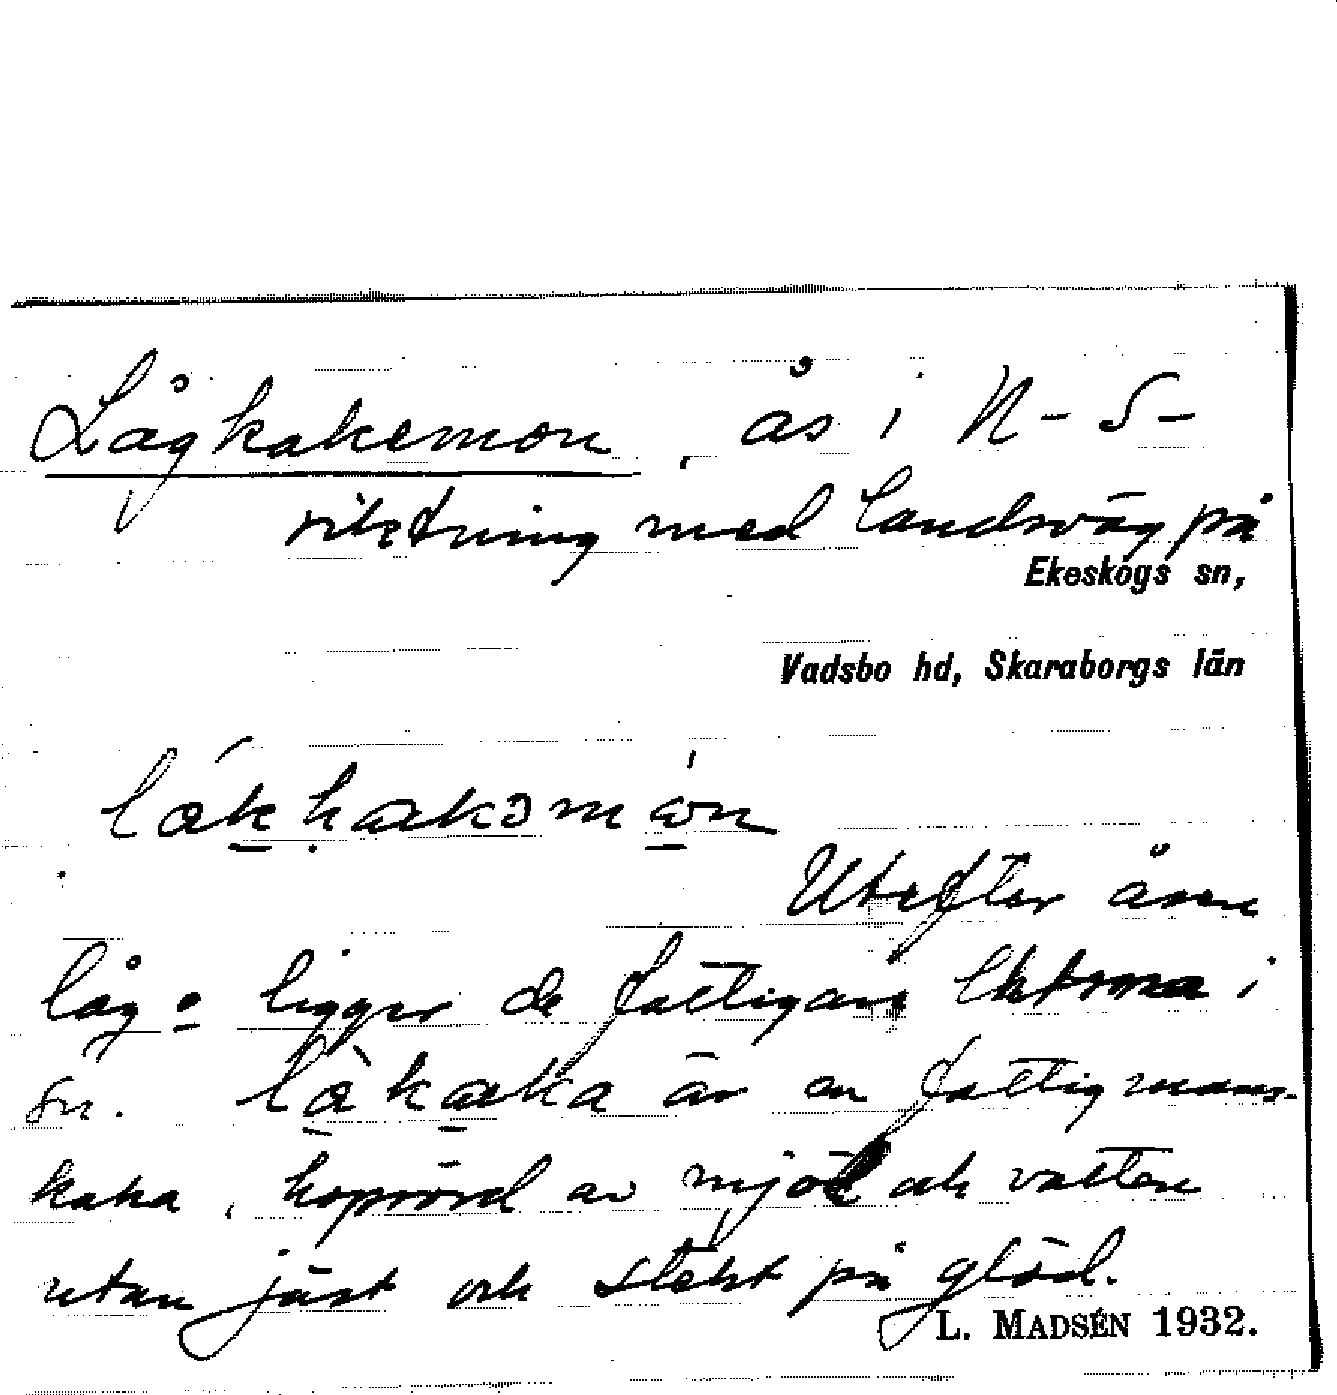 Lågkakemon, ås i N-S-
riktning med landsväg på
Ekeskogs sn,
Vadsbo hd, Skaraborgs län
Utefter åsen
låg o ligger de fattigas i
sn. låkaka är en fattigmans-
kaka, hoprörd av mjöl och vatten
utan jäst och stekt på glöd.
L. MADSÉN 1932.